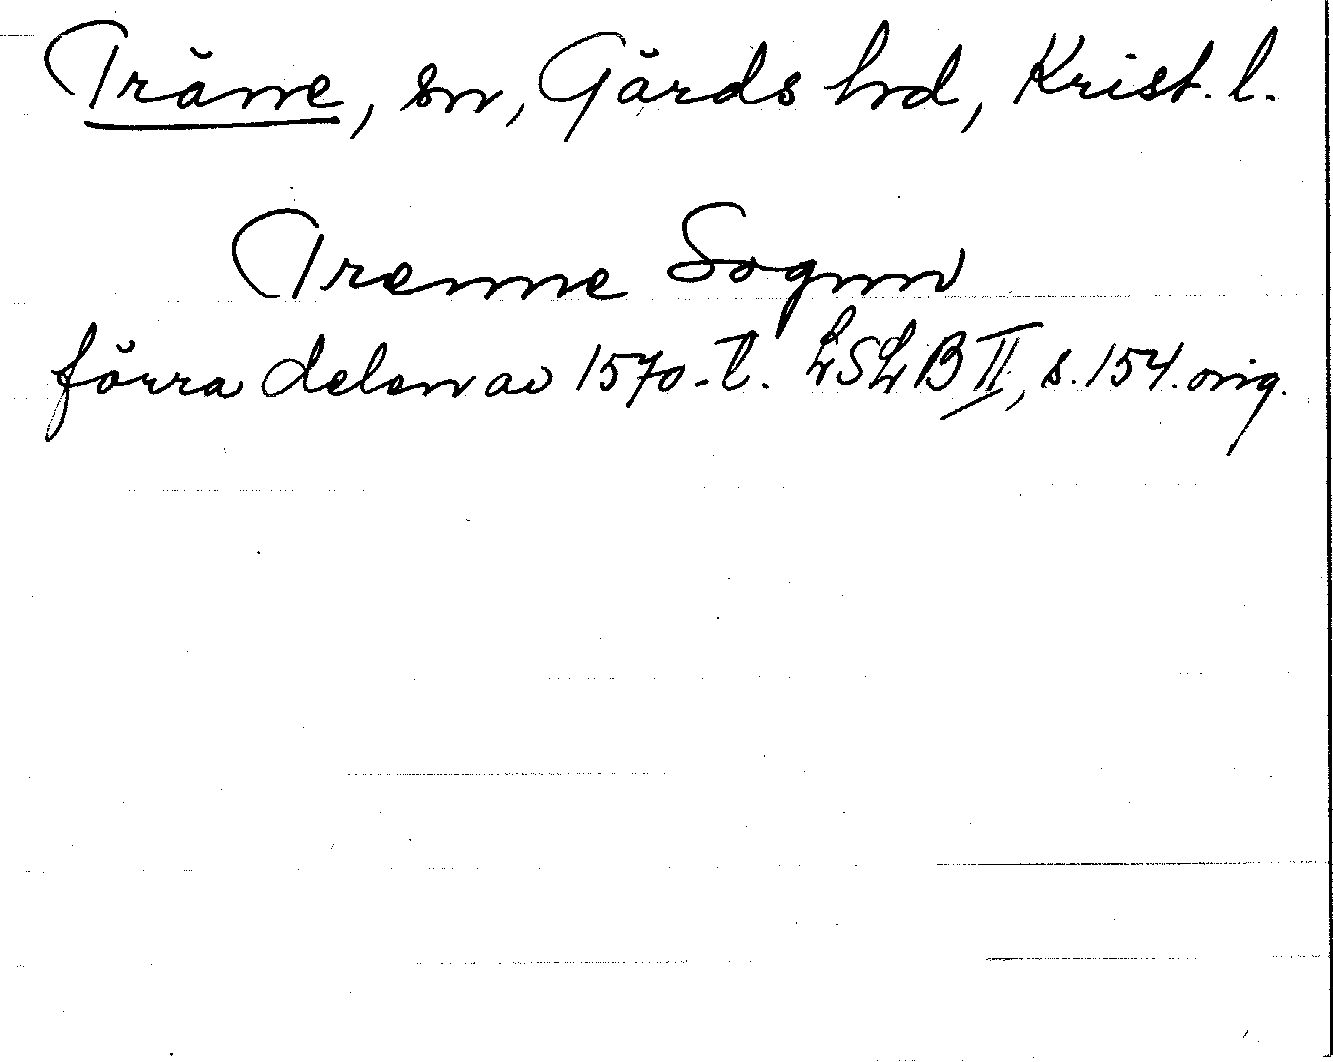 Träne, sn, Gärds hd, Krist. l.
Trenne Sognn
förra delen av 1570-t. LSLB II, s. 154. orig.